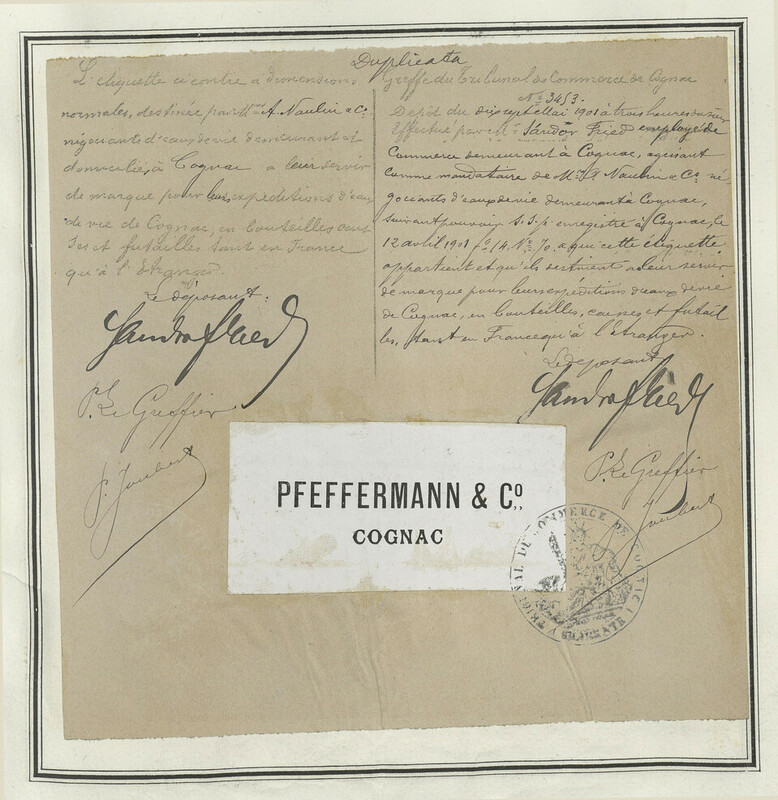 Duplicata
L'étiquette ci contre a dimensions
normales, destinée par M.rs A. Naulin & Cº
négociants d'eaux de vie demeurant et
domiciliés, à Cognac a leur servir
de marque pour leurs expéditions d'eaux
de vie de Cognac, en bouteilles caus
ses et futailles tant en France
qu'à l'Etranger.
Le déposant:
Sandor Fried
P. Le Greffier
P. Joubert
Greffe du Tribunal de Commerce de Cognac
Nº 3453.
Depôt du dix sept Mai 1901 à trois heures du soir
Effectué par M. Sandor Fried employé de
Commerce demeurant à Cognac, agissant
comme mandataire de M.rs A. Naulin & Cº né
gociants d'eaux de vie demeurant à Cognac,
suivant pouvoir s. s. p. enregistré à Cognac, le
12 avril 1901 fº 14. Nº 70. a qui cette étiquette
appartient et qu'ils destinent a leur servir
de marque pour leurs expéditions d'eaux de vie
de Cognac, en bouteilles, caisses et futail
les, tant en France qu'à l'étranger.
Le déposant
Sandor Fried
P. Le Greffier
Joubert
PFEFFERMANN & Cº
COGNAC
TRIBUNAL DU COMMERCE DE COGNAC